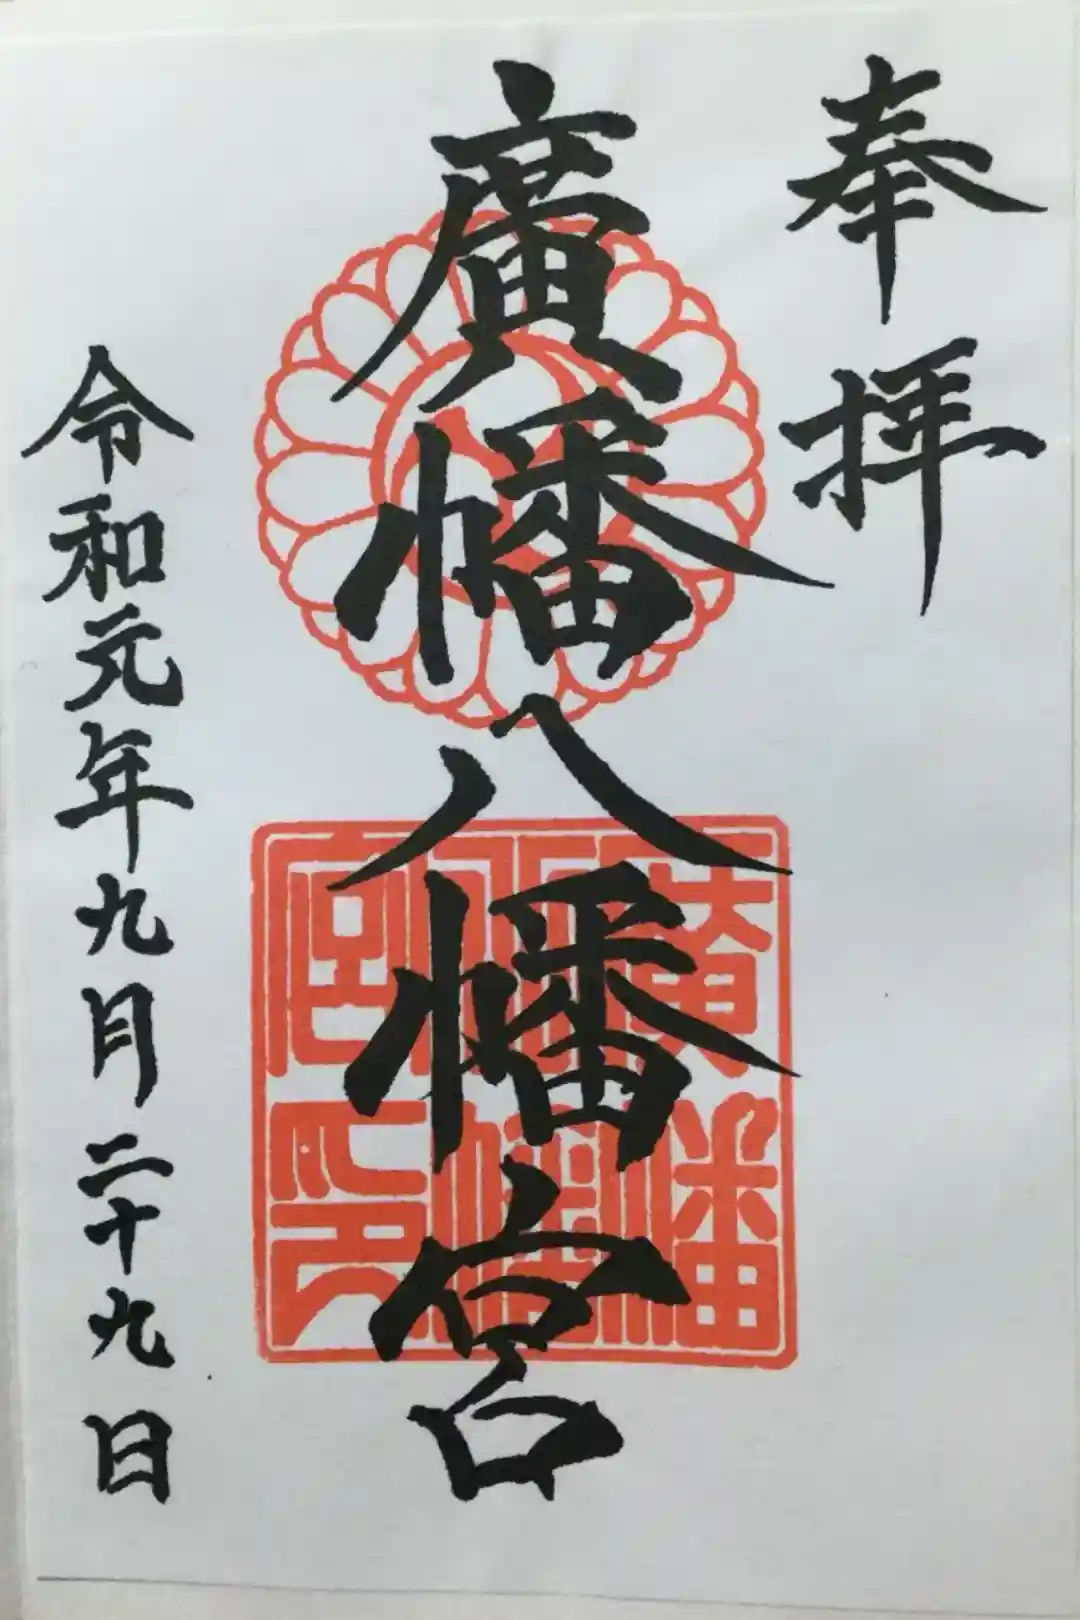 奉拝
廣幡八幡宮
廣幡
八幡
宮印
令和元年九月二十九日